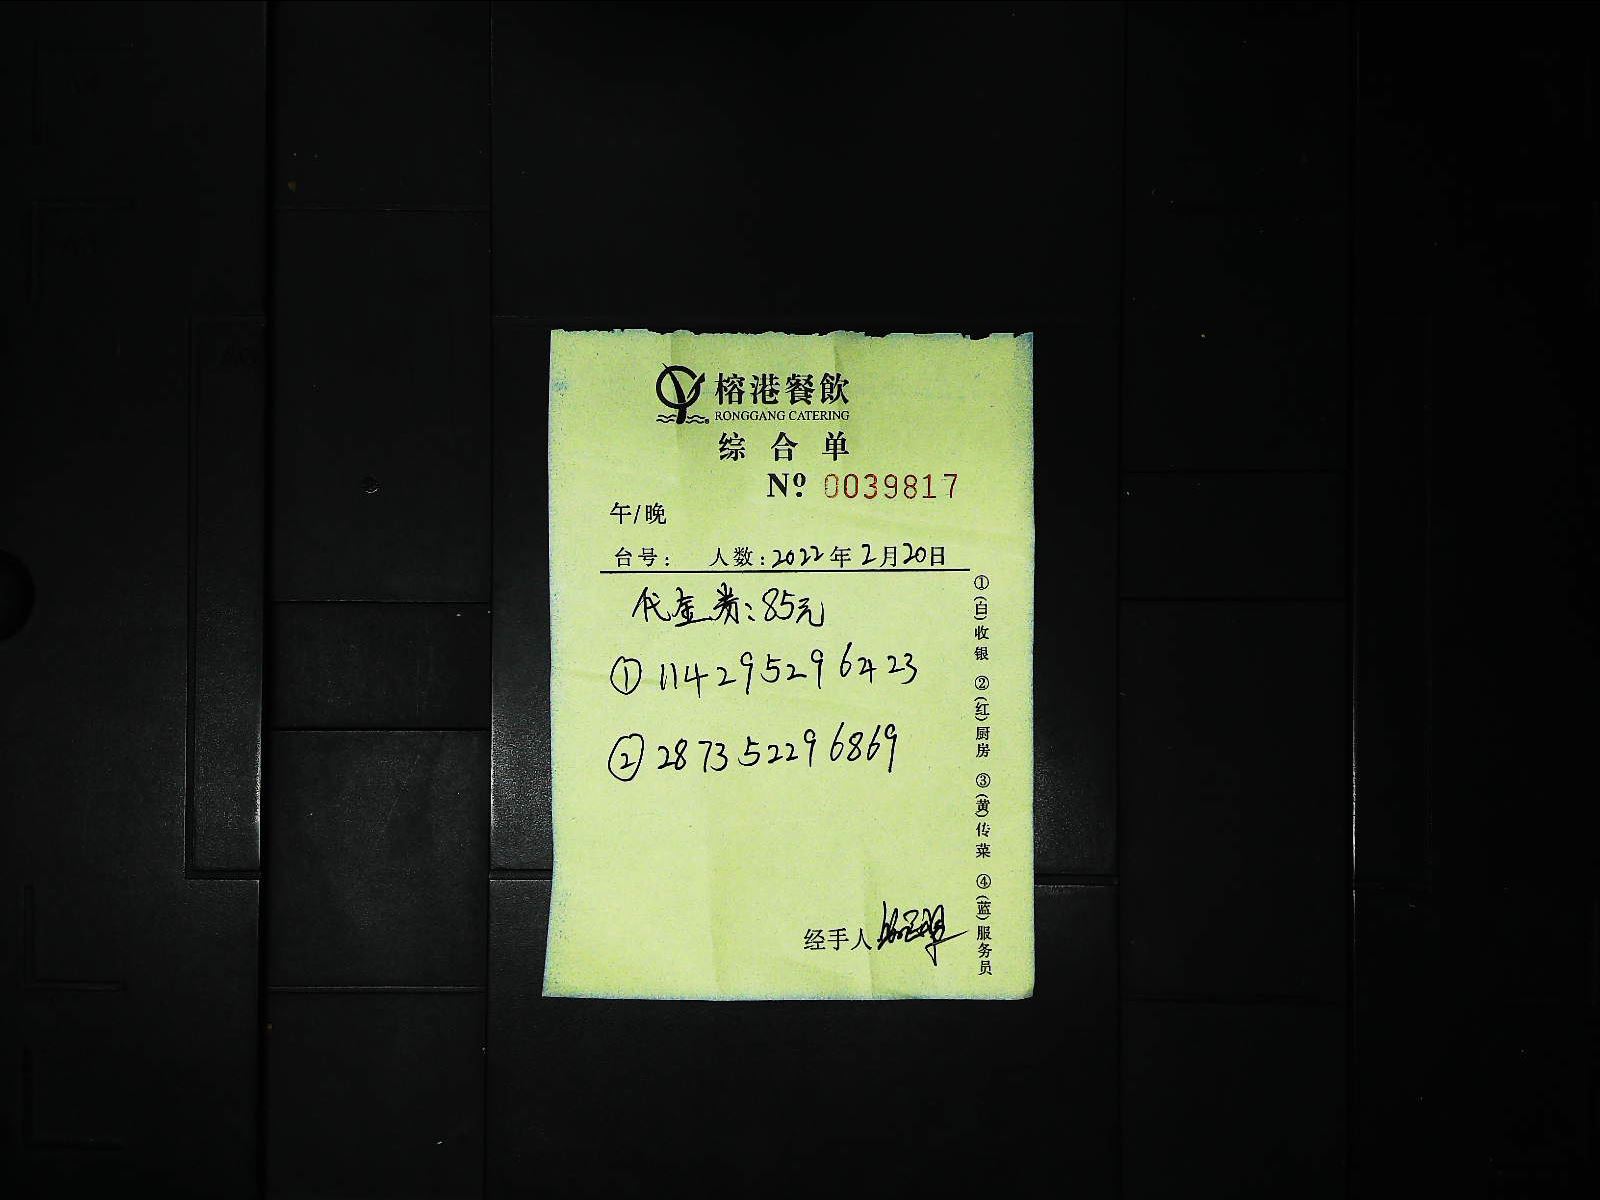 榕港餐飲
RONGGANG CATERING
综合单
Nº 0039817
午/晚
台号: 人数:2022年2月20日
代金券:85元
① 114295296423
② 287352296869
经手人
①(白)收银 ②(红)厨房 ③(黄)传菜 ④(蓝)服务员